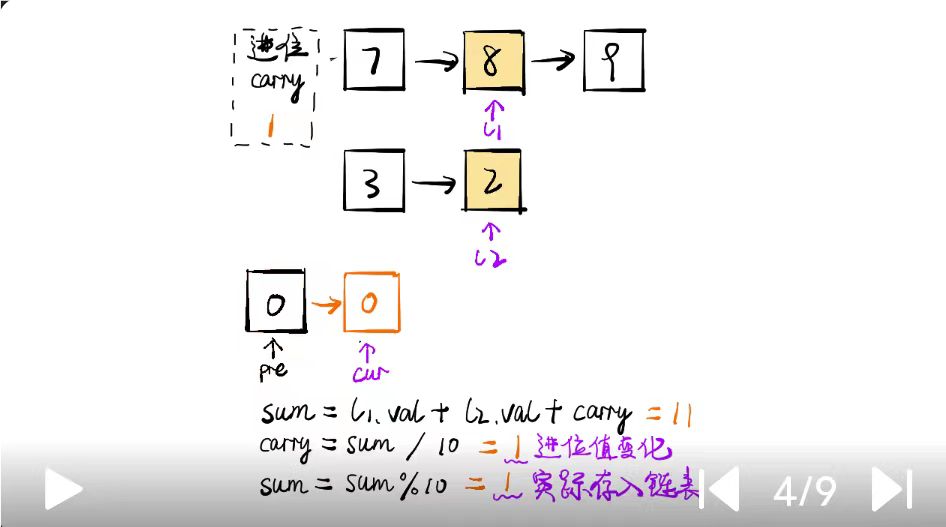 进位
carry
1
7 → 8 → 9
↑
l1
3 → 2
↑
l2
0 → 0
↑ ↑
pre cur
sum = l1.val + l2.val + carry = 11
carry = sum / 10 = 1 进位值变化
sum = sum % 10 = 1 实际存入链表
4/9